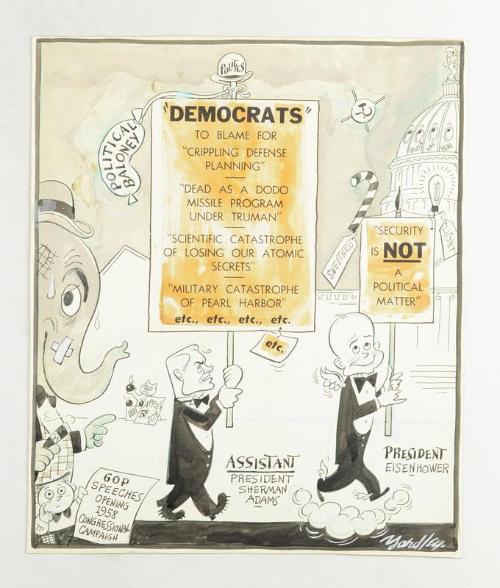 POLITICS
POLITICAL
BALONEY
"DEMOCRATS"
TO BLAME FOR
"CRIPPLING DEFENSE
PLANNING"
"DEAD AS A DODO
MISSILE PROGRAM
UNDER TRUMAN"
"SCIENTIFIC CATASTROPHE
OF LOSING OUR ATOMIC
SECRETS"
"MILITARY CATASTROPHE
OF PEARL HARBOR"
etc., etc., etc., etc.
etc.
SWEETNESS
LIGHT
"SECURITY
IS NOT
A
POLITICAL
MATTER"
ASSISTANT
PRESIDENT
SHERMAN
ADAMS
PRESIDENT
EISENHOWER
GOP
SPEECHES
OPENING
1958
CONGRESSIONAL
CAMPAIGN
Yardley